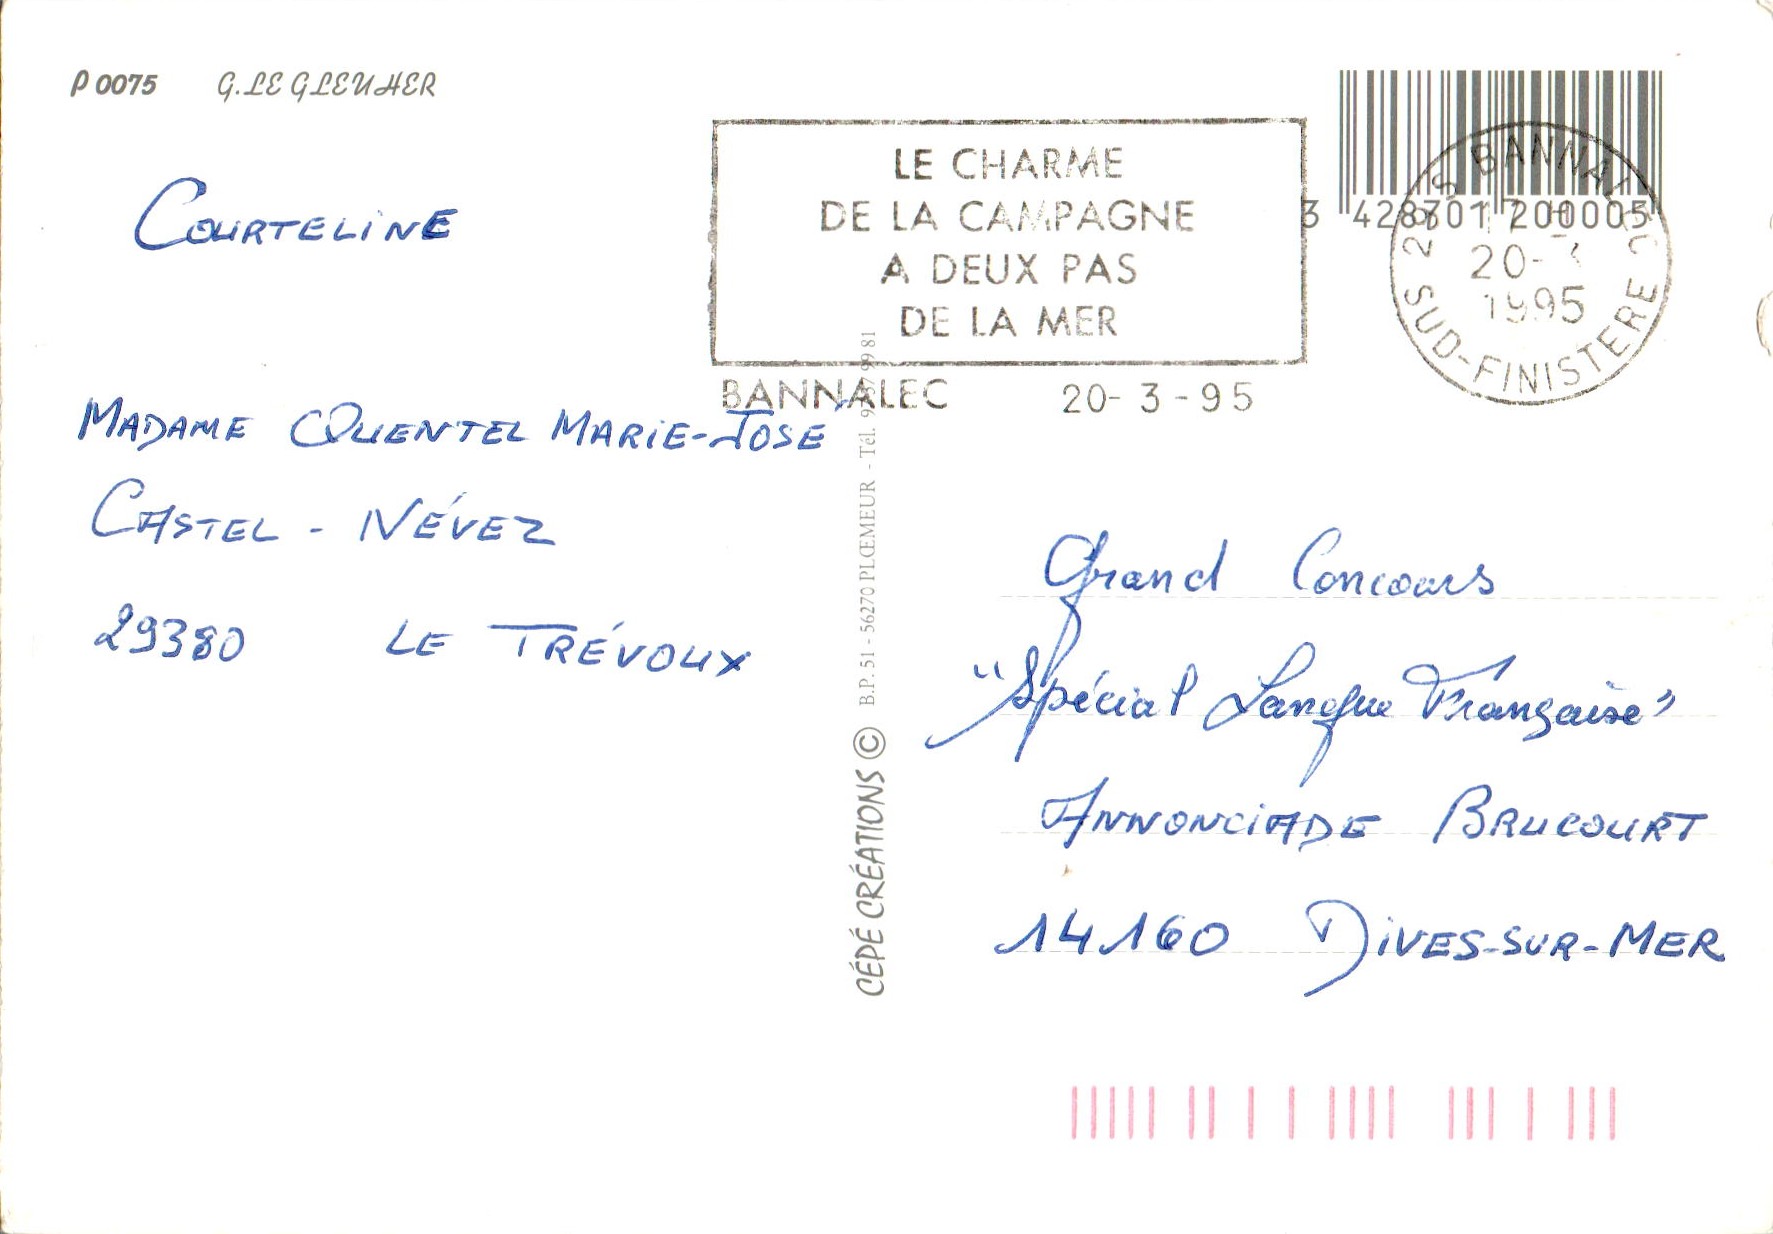 P 0075 G. LE GLEUHER
COURTELINE
LE CHARME
DE LA CAMPAGNE
A DEUX PAS
DE LA MER
BANNALEC 20-3-95
3 428301 200005
20-3
1995
SUD-FINISTERE
MADAME QUENTEL MARIE-JOSÉ
CASTEL - NÉVEZ
29380 LE TRÉVOUX
CÉPÉ CRÉATIONS © B.P. 51 - 56270 PLŒMEUR - Tél.
Grand Concours
"Spécial Langue Française"
ANNONCIADE BRUCOURT
14160 DIVES-SUR-MER